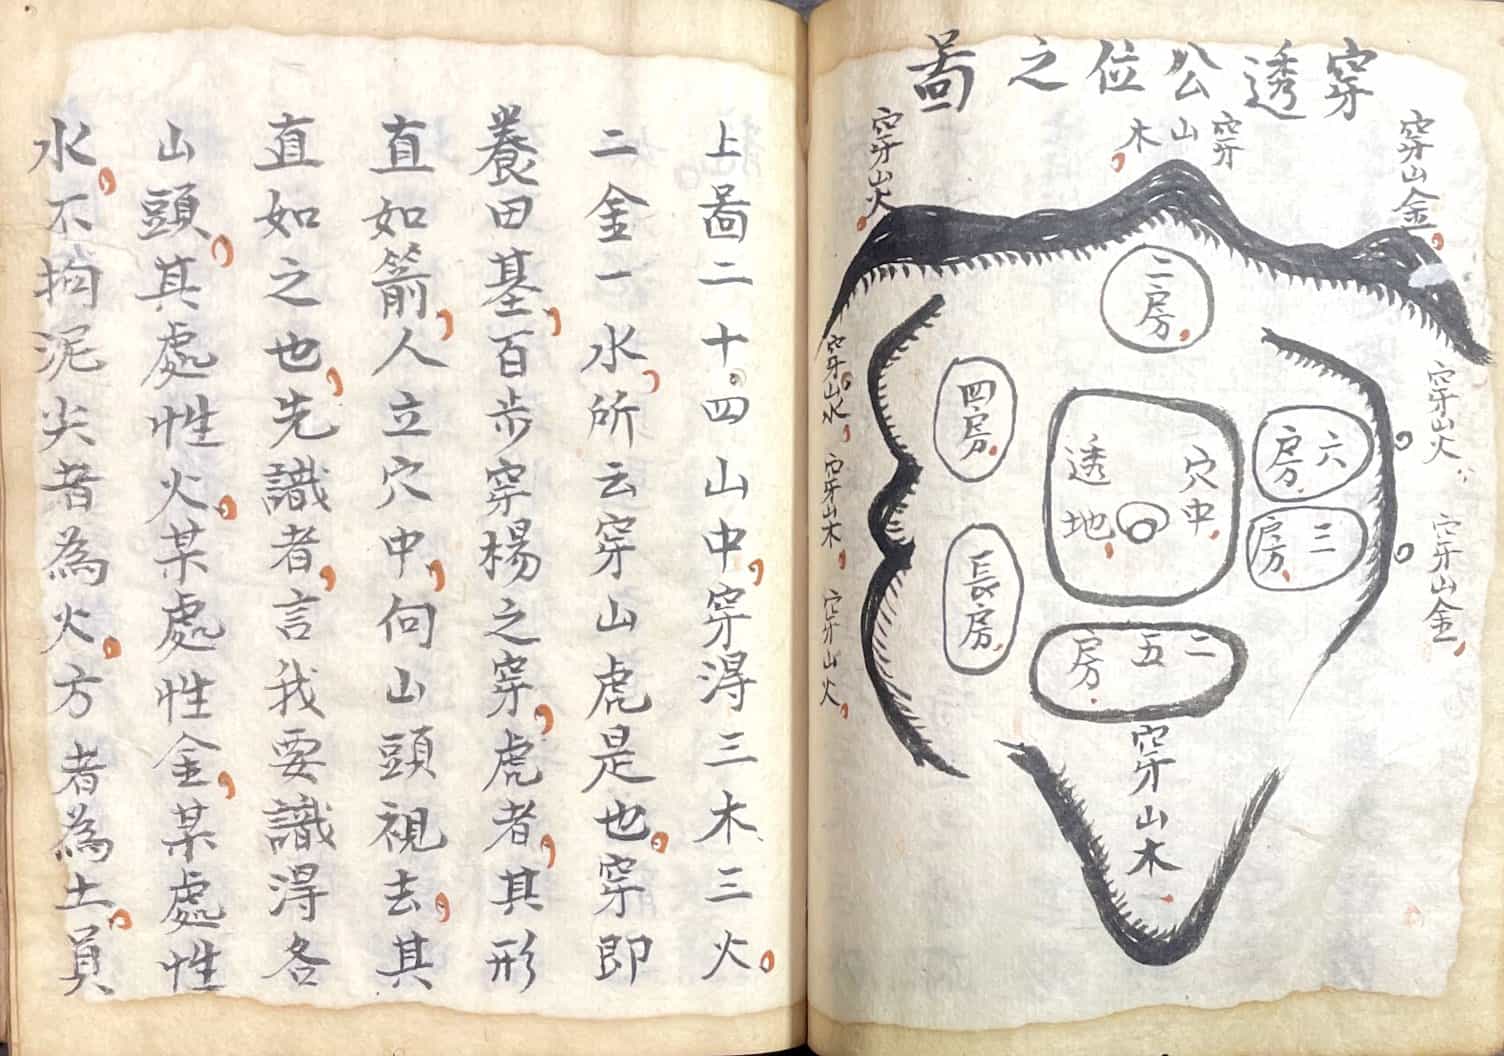 穿透公位之啚
穿山金
穿山木
穿山火
二房
穿山水
穿山木
穿山火
四房
長房
穴中
透地
六房
三房
二五房
穿山火
穿山金
穿山木
上啚二十四山中穿淂三木三火
二金一水所云穿山虎是也穿即
養田基百步穿楊之穿虎者其形
直如箭人立穴中向山頭視去其
直如之也先識者言我要識淂各
山頭某處性火某處性金某處性
水不拘泥尖者為火方者為土員